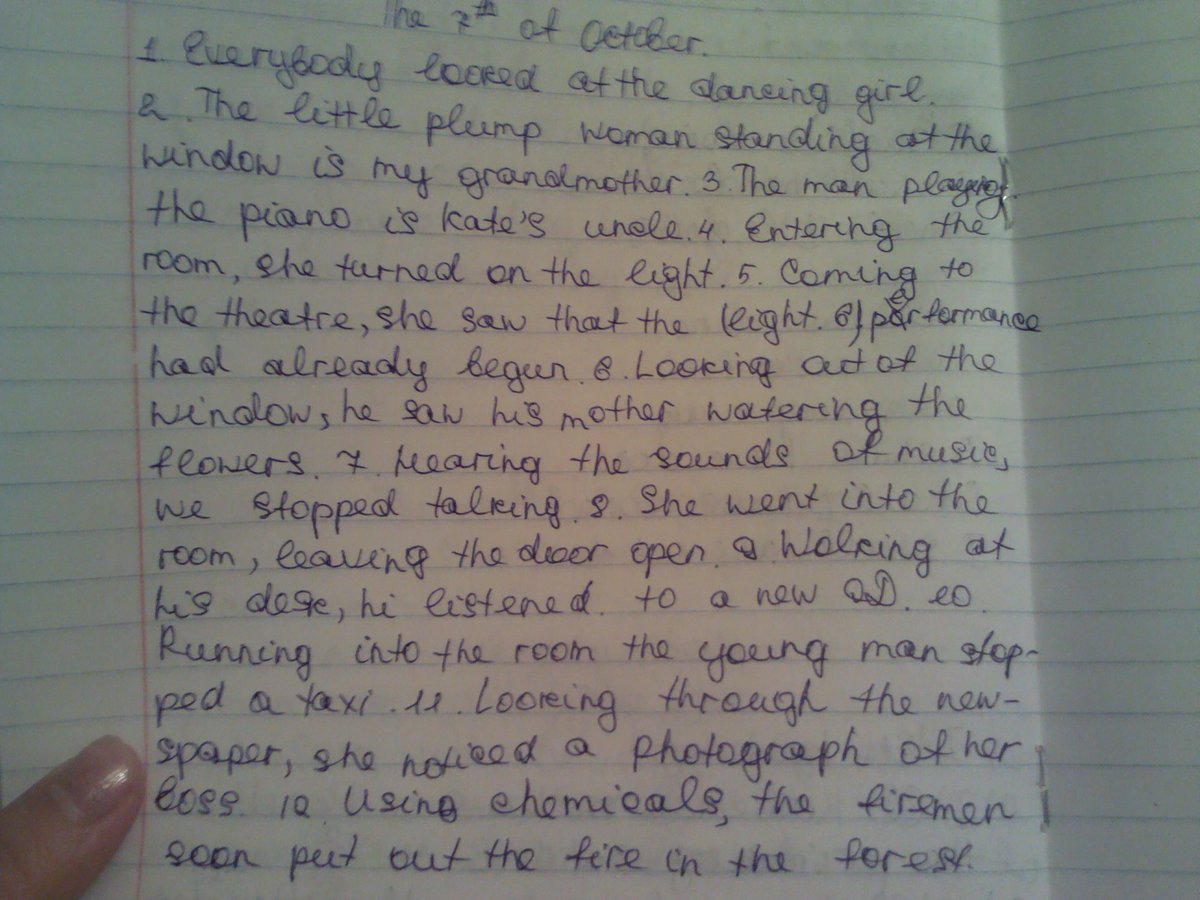 The 7th of October.
1. Everybody looked at the dancing girl.
2. The little plump woman standing at the
window is my grandmother. 3. The man playing
the piano is Kate's uncle. 4. Entering the
room, she turned on the light. 5. Coming to
the theatre, she saw that the (light. 6) performance
had already begun. 6. Looking out of the
window, he saw his mother watering the
flowers. 7. Hearing the sounds of music,
we stopped talking. 8. She went into the
room, leaving the door open. 9. Wolking at
his desk, hi listened. to a new CD. 10.
Running into the room the young man stop-
ped a taxi. 11. Looking through the new-
spaper, she noticed a photograph of her
boss. 12. Using chemicals, the firemen
soon put out the fire in the forest.